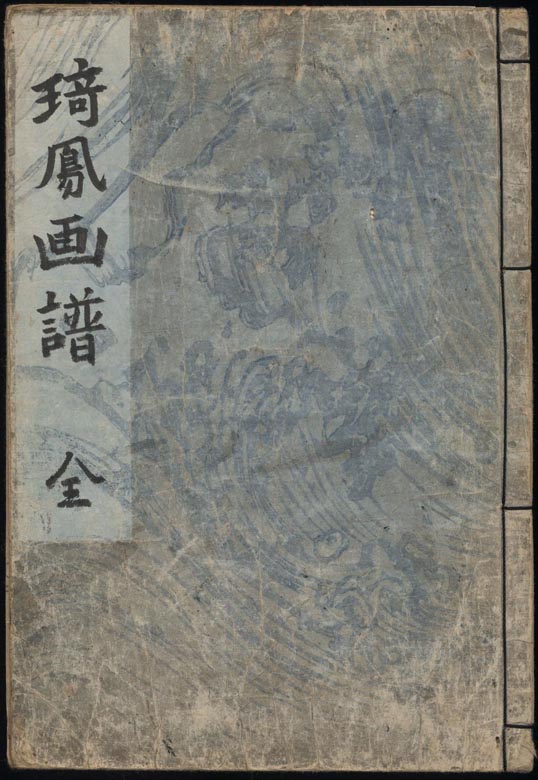 琦鳳画譜
全